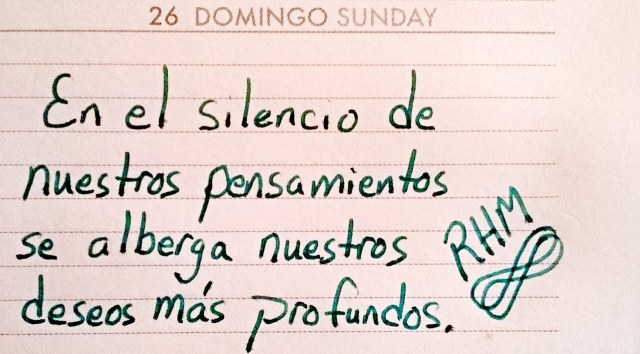 26 DOMINGO SUNDAY
En el silencio de
nuestros pensamientos
se alberga nuestros
deseos más profundos.
RHM